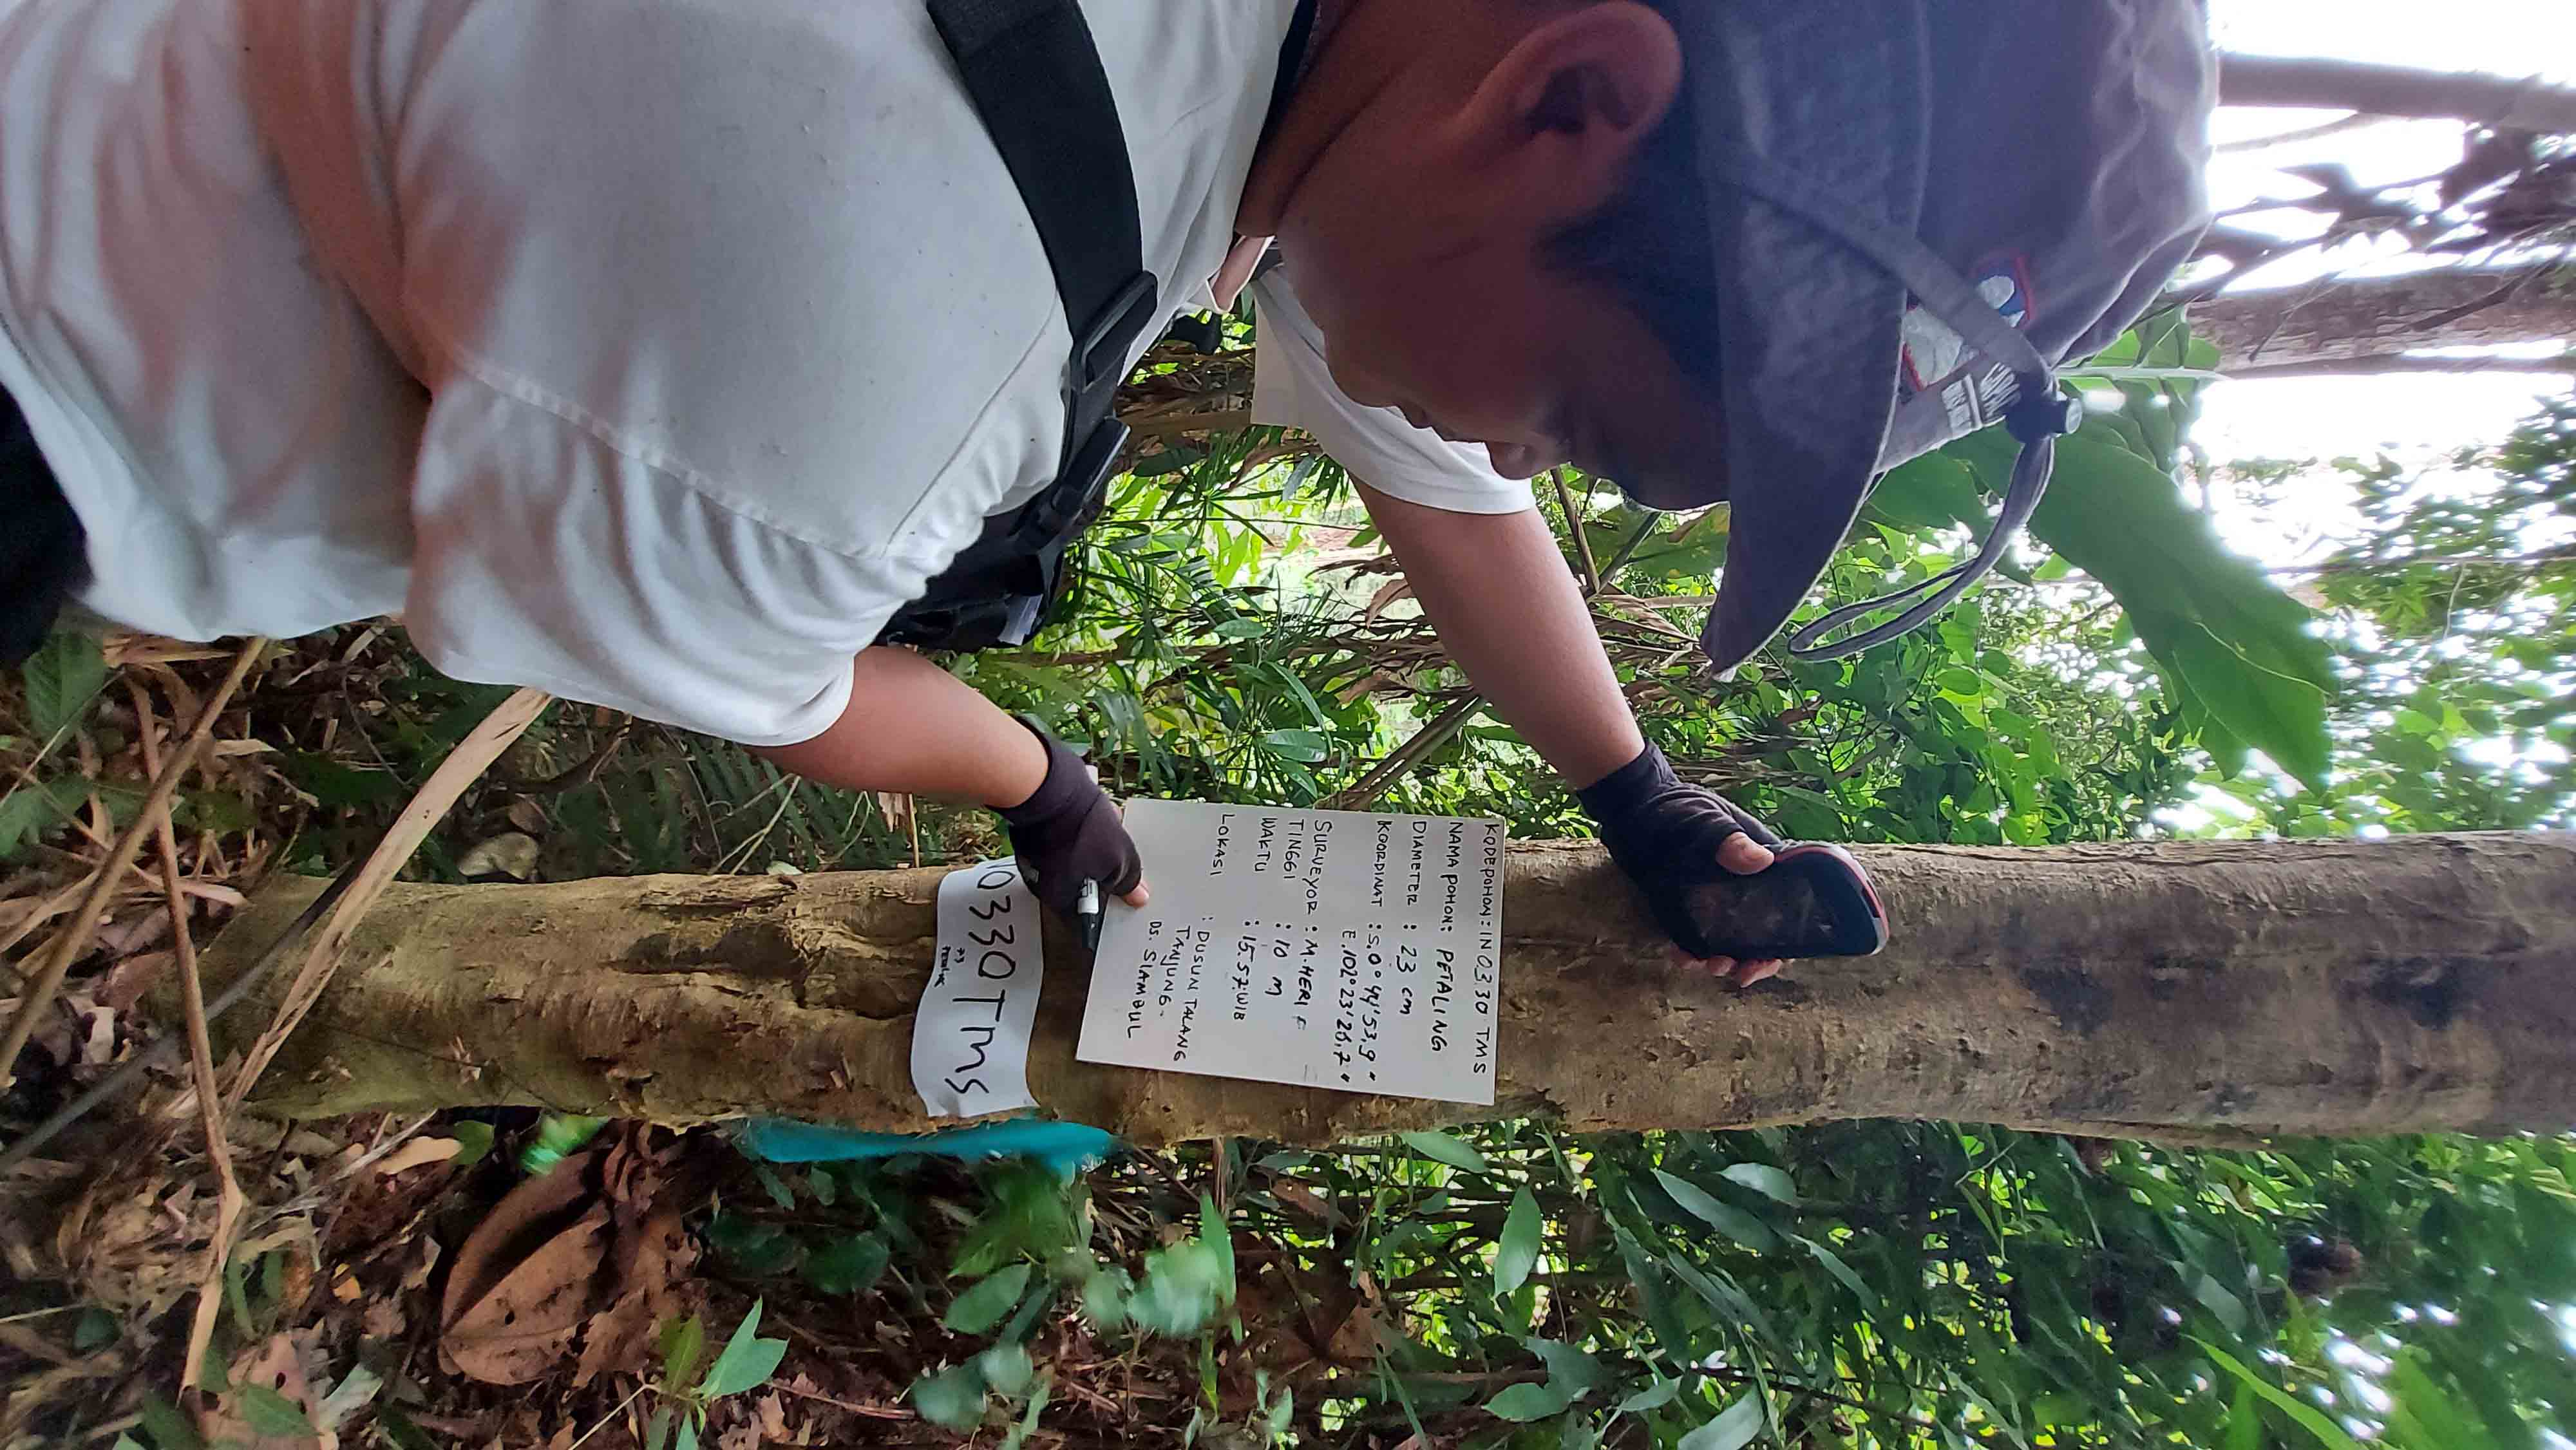 KODEPOHON: IN0330 TMS
NAMA POHON: PETALING
DIAMETER : 23 cm
KOORDINAT : S.0° 44' 53,9"
E.102° 23' 26,7"
SURVEYOR : M.HERI F
TINGGI : 10 m
WAKTU : 15.57.WIB
LOKASI : DUSUN TALANG
TANJUNG -
DS. SIAMBUL
0330 TMS